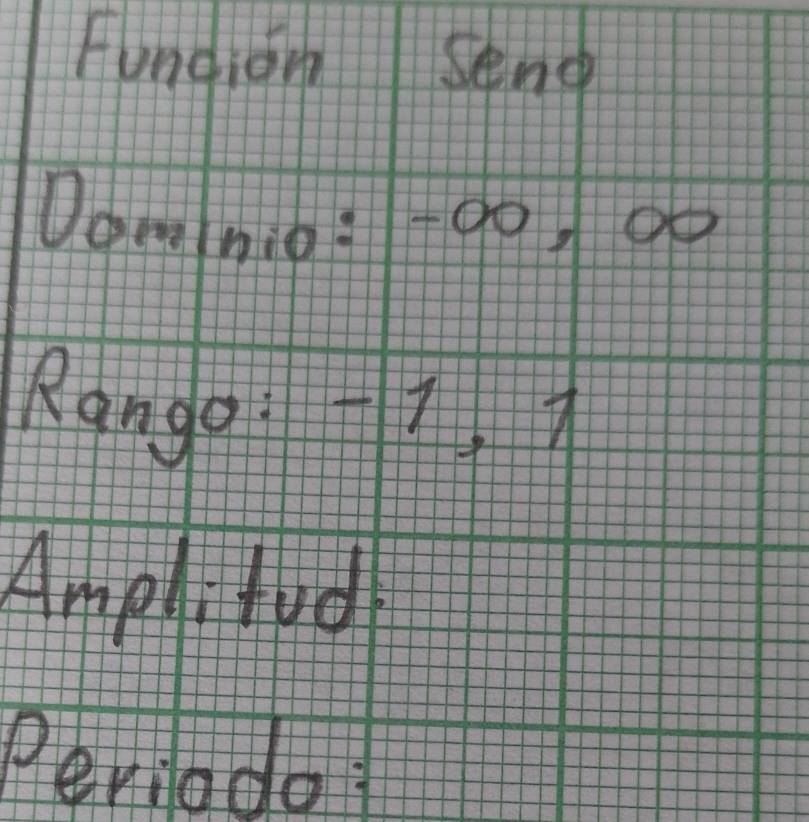 Función Seno
Dominio: -∞, ∞
Rango: -1, 1
Amplitud:
Periodo: